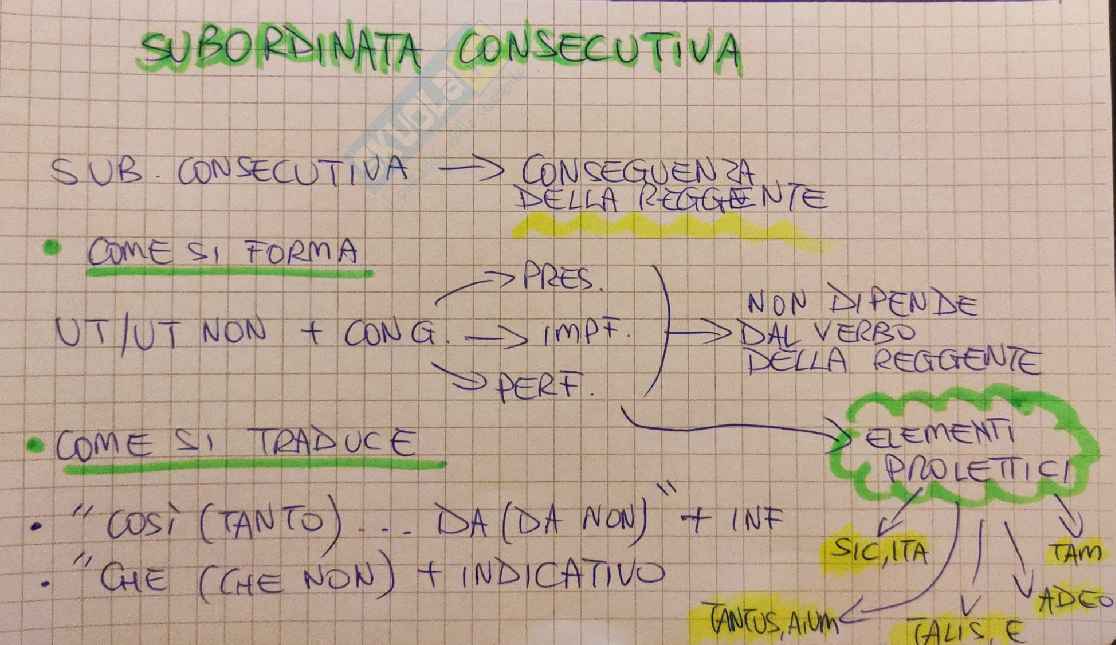 SUBORDINATA CONSECUTIVA
SUB. CONSECUTIVA → CONSEGUENZA
DELLA REGGENTE
• COME SI FORMA
UT/UT NON + CONG.
→ PRES.
→ IMPF.
→ PERF.
→ NON DIPENDE
DAL VERBO
DELLA REGGENTE
ELEMENTI
PROLETTICI
• COME SI TRADUCE
• "COSÌ (TANTO) ... DA (DA NON)" + INF
• "CHE (CHE NON) + INDICATIVO
SIC, ITA
TAM
ADEO
TANTUS, A, UM
TALIS, E